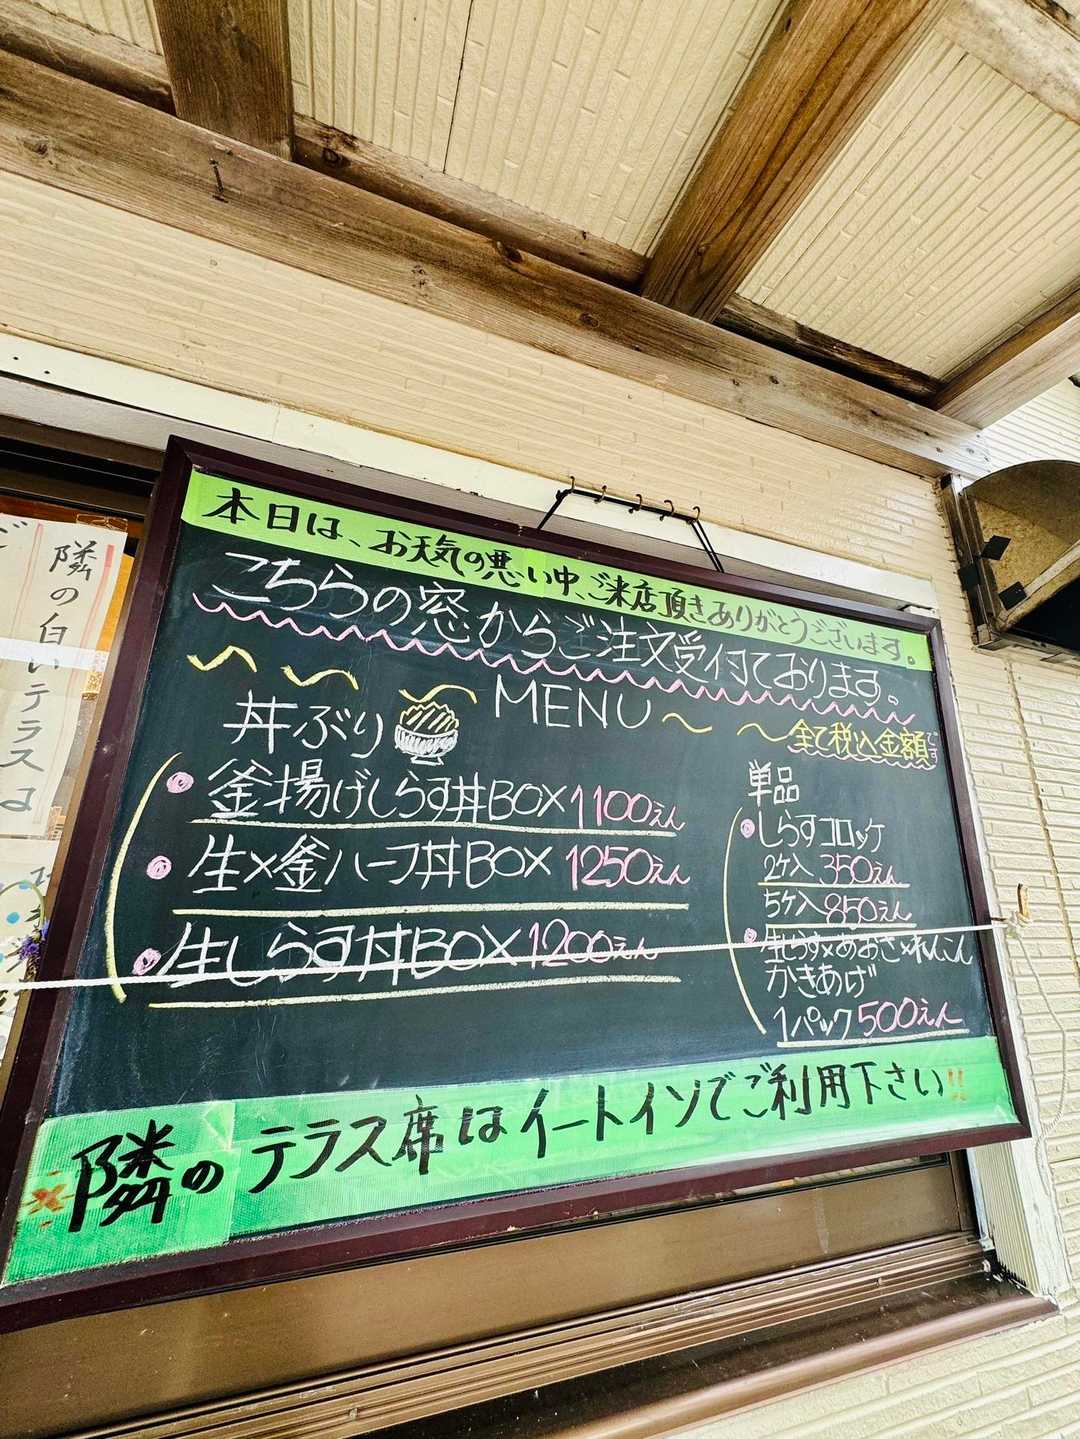 本日は、お天気の悪い中、ご来店頂きありがとうございます。
こちらの窓からご注文受付ております。
MENU
全て税込金額です
丼ぶり
釜揚げしらす丼BOX 1100えん
生×釜ハーフ丼BOX 1250えん
生しらす丼BOX 1200えん
単品
しらすコロッケ
2ケ入 350えん
5ケ入 850えん
生しらす×あおさ×れんこん
かきあげ
1パック 500えん
隣のテラス席はイートインでご利用下さい!!
隣の白いテラスよ